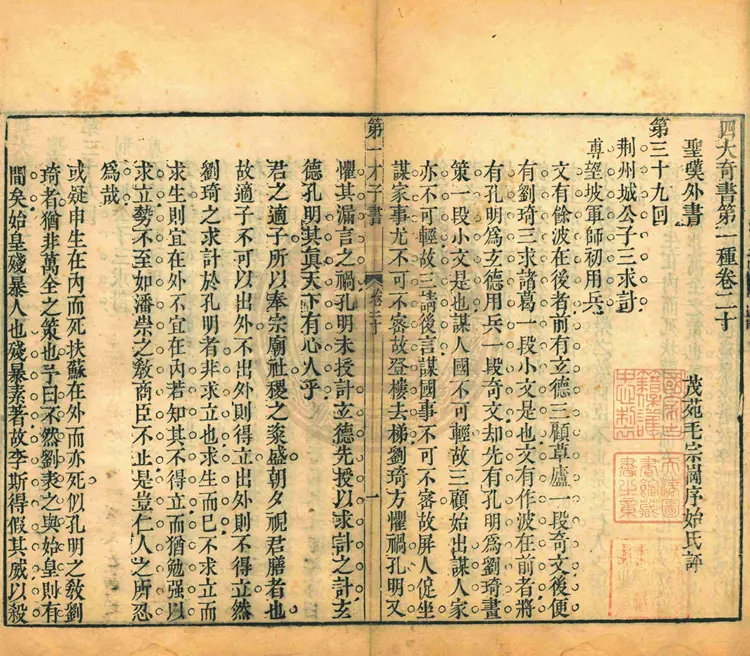 四大奇書第一種卷二十
聖嘆外書 茂苑毛宗崗序始氏評
第三十九回
荆州城公子三求計
博望坡軍師初用兵
文有餘波在後者前有玄德三顧草廬一段奇文後便
有劉琦三求諸葛一段小文是也文有作波在前者將
有孔明爲玄德用兵一段奇文却先有孔明爲劉琦畫
策一段小文是也謀人國不可輕故三顧始出謀人家
亦不可輕故三請後言謀國事不可不審故屏人促坐
謀家事尤不可不密故登樓去梯劉琦方懼禍孔明又
第一才子書 卷二十 一
懼其漏言之禍孔明未授計玄德先授以求計之計玄
德孔明其眞天下有心人乎
君之適子所以奉宗廟社稷之粢盛朝夕視君膳者也
故適子不可以出外不出外則得立出外則不得立然
劉琦之求計於孔明者非求立也求生而已不求立而
求生則宜在外不宜在內若知其不得立而猶勉强以
求立勢不至如潘崇之敎商臣不止是豈仁人之所忍
爲哉
或疑申生在內而死扶蘇在外而亦死似孔明之敎劉
琦者猶非萬全之策也予曰不然劉表之與始皇則有
間矣始皇殘暴人也殘暴素著故李斯得假其威以殺